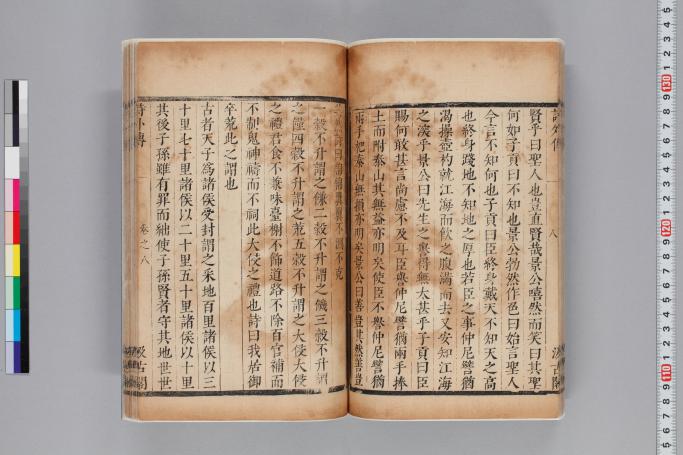 詩外傳
八
汲古閣
賢乎曰聖人也豈直賢哉景公嘻然而笑曰其聖
何如子貢曰不知也景公勃然作色曰始言聖人
今言不知何也子貢曰臣終身戴天不知天之高
也終身踐地不知地之厚也若臣之事仲尼譬猶
渴操壺杓就江海而飲之腹滿而去又安知江海
之深乎景公曰先生之譽得無太甚乎子貢曰臣
賜何敢甚言尚慮不及耳臣譽仲尼譬猶兩手捧
土而附泰山其無益亦明矣使臣不譽仲尼譬猶
兩手把泰山無損亦明矣景公曰善豈其然善豈
其然詩曰綿綿翼翼不測不克
一穀不升謂之鎌二穀不升謂之饑三穀不升謂
之饉四穀不升謂之荒五穀不升謂之大侵大侵
之禮君食不兼味臺榭不飾道路不除百官補而
不制鬼神禱而不祠此大侵之禮也詩曰我居御
卒荒此之謂也
古者天子爲諸侯受封謂之采地百里諸侯以三
十里七十里諸侯以二十里五十里諸侯以十里
其後子孫雖有罪而絀使子孫賢者守其地世世
詩外傳
卷之八
汲古閣
130
120
110